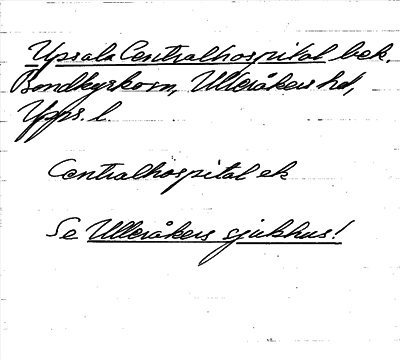 Upsala Centralhospital bek.
Bondkyrkosn, Ulleråkers hd,
Upps. l.
Centralhospital ek
Se Ulleråkers sjukhus!